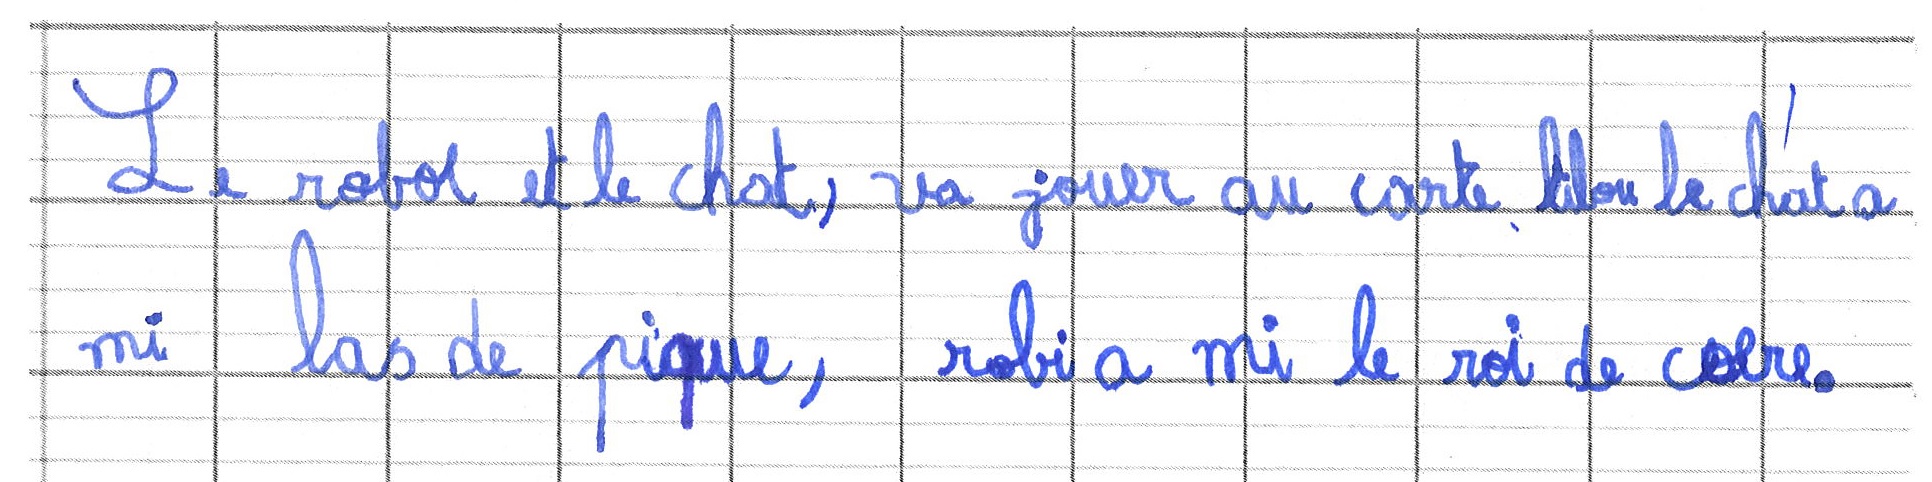 Le robot et le chat, va jouer au carte, tilou le chat a
mi las de pique, robi a mi le roi de